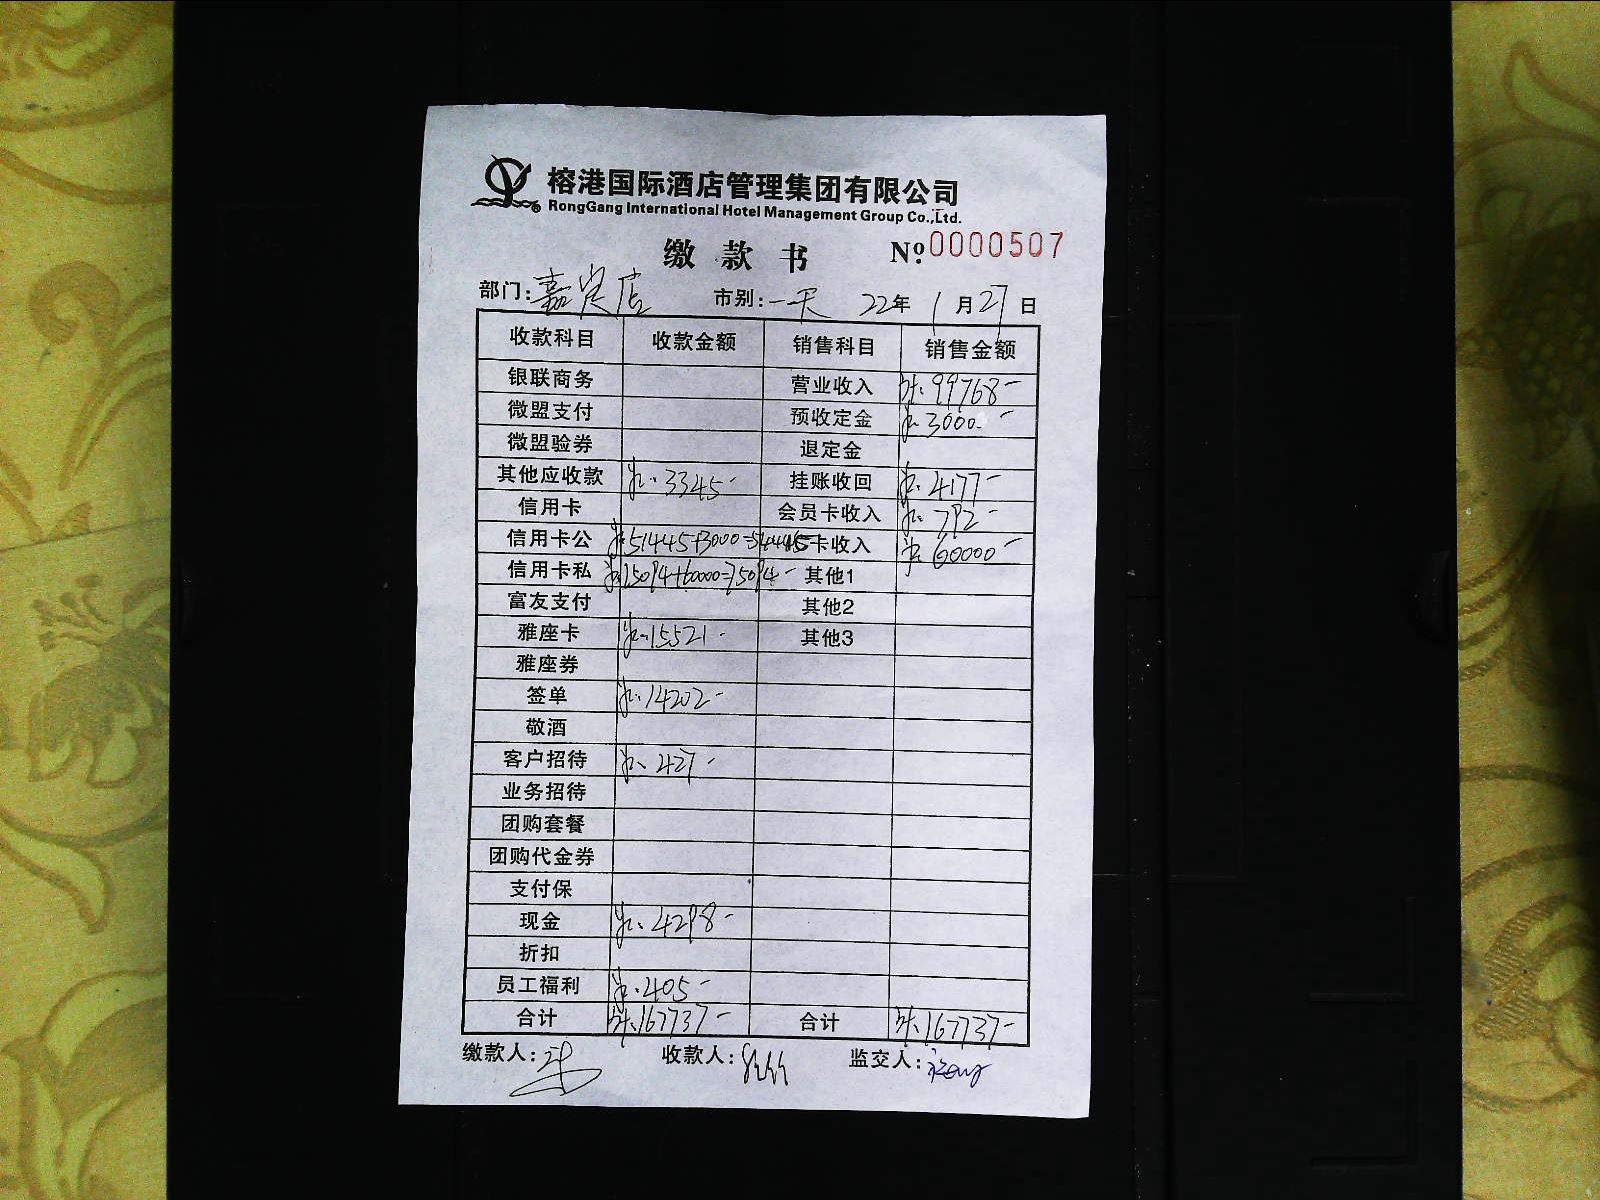 榕港国际酒店管理集团有限公司
RongGang International Hotel Management Group Co.,Ltd.
缴 款 书 Nº 0000507
部门: 嘉宾店 市别: 一天 22年 1月27日
收款科目 收款金额 销售科目 销售金额
银联商务 营业收入 99768-
微盟支付 预收定金 3000-
微盟验券 退定金
其他应收款 3345- 挂账收回 4177-
信用卡 会员卡收入 792-
信用卡公 51445+3000=54445 卡收入 60000-
信用卡私 15094+60000=75094- 其他1
富友支付 其他2
雅座卡 15521- 其他3
雅座券
签单 14202-
敬酒
客户招待 427-
业务招待
团购套餐
团购代金券
支付保
现金 4298-
折扣
员工福利 405-
合计 167737- 合计 167737-
缴款人: 收款人: 监交人: